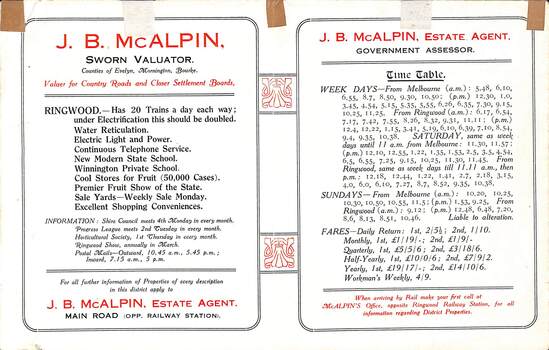 J. B. McALPIN,
SWORN VALUATOR.
Counties of Evelyn, Mornington, Bourke.
Valuer for Country Roads and Closer Settlement Boards,
RINGWOOD.—Has 20 Trains a day each way;
under Electrification this should be doubled.
Water Reticulation.
Electric Light and Power.
Continuous Telephone Service.
New Modern State School.
Winnington Private School.
Cool Stores for Fruit (50,000 Cases).
Premier Fruit Show of the State.
Sale Yards—Weekly Sale Monday.
Excellent Shopping Conveniences.
INFORMATION: Shire Council meets 4th Monday in every month.
Progress League meets 2nd Tuesday in every month.
Horticultural Society, 1st Thursday in every month.
Ringwood Show, annually in March.
Postal Mails—Outward, 10.45 a.m., 5.45 p.m.;
Inward, 7.15 a.m., 5 p.m.
For all further Information of Properties of every description
in this district apply to
J. B. McALPIN, ESTATE AGENT.
MAIN ROAD (OPP. RAILWAY STATION).
J. B. McALPIN, ESTATE AGENT.
GOVERNMENT ASSESSOR.
Time Table.
WEEK DAYS—From Melbourne (a.m.): 5.48, 6.10,
6.55, 8.7, 8.50, 9.30, 10.50; (p.m.) 12.30, 1.0,
3.45, 4.54, 5.15, 5.35, 5.55, 6.26, 6.35, 7.30, 9.15,
10.25, 11.25. From Ringwood (a.m.): 6.17, 6.54,
7.17, 7.42, 7.55, 8.26, 8.32, 9.31, 11.11; (p.m.)
12.4, 12.22, 1.15, 3.41, 5.19, 6.10, 6.39, 7.10, 8.54,
9.4, 9.35, 10.38. SATURDAY, same as week
days until 11 a.m. from Melbourne: 11.30, 11.57;
(p.m.) 12.10, 12.55, 1.22, 1.35, 1.53, 2.5, 3.5, 4.54,
6.5, 6.55, 7.25, 9.15, 10.25, 11.30, 11.45. From
Ringwood, same as week days till 11.11 a.m., then
p.m.: 12.18, 12.44, 1.22, 1.41, 2.7, 2.18, 3.15,
4.0, 6.0, 6.10, 7.27, 8.7, 8.52, 9.35, 10.38.
SUNDAYS—From Melbourne (a.m.): 10.20, 10.25,
10.30, 10.50, 10.55, 11.5; (p.m.) 1.53, 9.25. From
Ringwood (a.m.): 9.12; (p.m.) 12.48, 6.48, 7.20,
8.6, 8.13, 8.51, 10.46. Liable to alteration.
FARES—Daily Return: 1st, 2/5½; 2nd, 1/10.
Monthly, 1st, £1/19/-; 2nd, £1/9/-.
Quarterly, 1st, £5/5/6; 2nd, £3/18/6.
Half-Yearly, 1st, £10/0/6; 2nd, £7/9/2.
Yearly, 1st, £19/17/-; 2nd, £14/10/6.
Workman's Weekly, 4/9.
When arriving by Rail make your first call at
McALPIN'S Office, opposite Ringwood Railway Station, for all
information regarding District Properties.